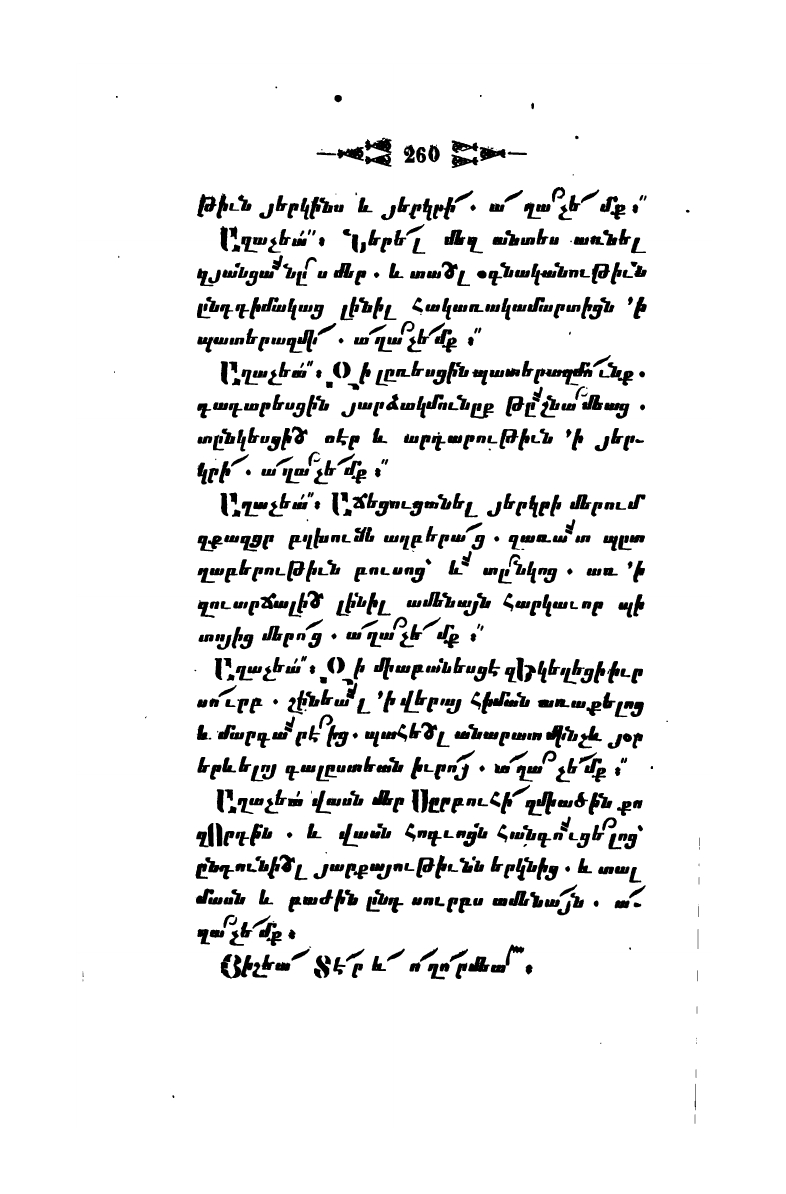 260
թիւն յերկինս և յերկրի՛. ա՛ղաչե՛մք։
Աղաչեմ։ Ներե՛լ մեզ անտես առնել
զյանցանըս մեր. և տալ օգնականութիւն
ընդդիմակաց լինիլ հակառակամարտիցն ՚ի
պատերազմի՛. ա՛ղաչե՛մք։
Աղաչեմ։ Զի լըռեսցին պատերազմո՛ւնք.
դադարեսցին յարձակմունըք թըշնամեաց.
տընկեսցի սէր և արդարութիւն ՚ի յեր-
կրի՛. ա՛ղաչե՛մք։
Աղաչեմ։ Աճեցուցանել յերկրի մերում
զքաղցր բղխումն աղբերա՛ց. զառատ պըտ
ղաբերութիւն բուսոց՝ և տընկոց. առ ՚ի
զուարճալի լինիլ ամենայն հարկաւոր պի
տոյից մերո՛ց. ա՛ղաչե՛մք։
Աղաչեմ։ Զի միաբանեսցէ զԵկեղեցի իւր
սո՛ւրբ. շինեալ ՚ի վերայ հիման առաքելոց
և մարգարէից. պահել անարատ մինչև յօր
երևելոյ գալըստեան իւրո՛յ. ա՛ղաչե՛մք։
Աղաչեմ վասն մեր Սըրբուհի՛ զմիածին քո
զՈրդին. և վասն հոգւոցն հանգուցելոց՝
ընդունիլ յարքայութիւնն երկնից. և տալ
մասն և բաժին ընդ սուրբս ամենա՛յն. ա՛-
ղաչե՛մք։
Յիշեա՛ Տէ՛ր և՛ ո՛ղո՛րմեա՛։